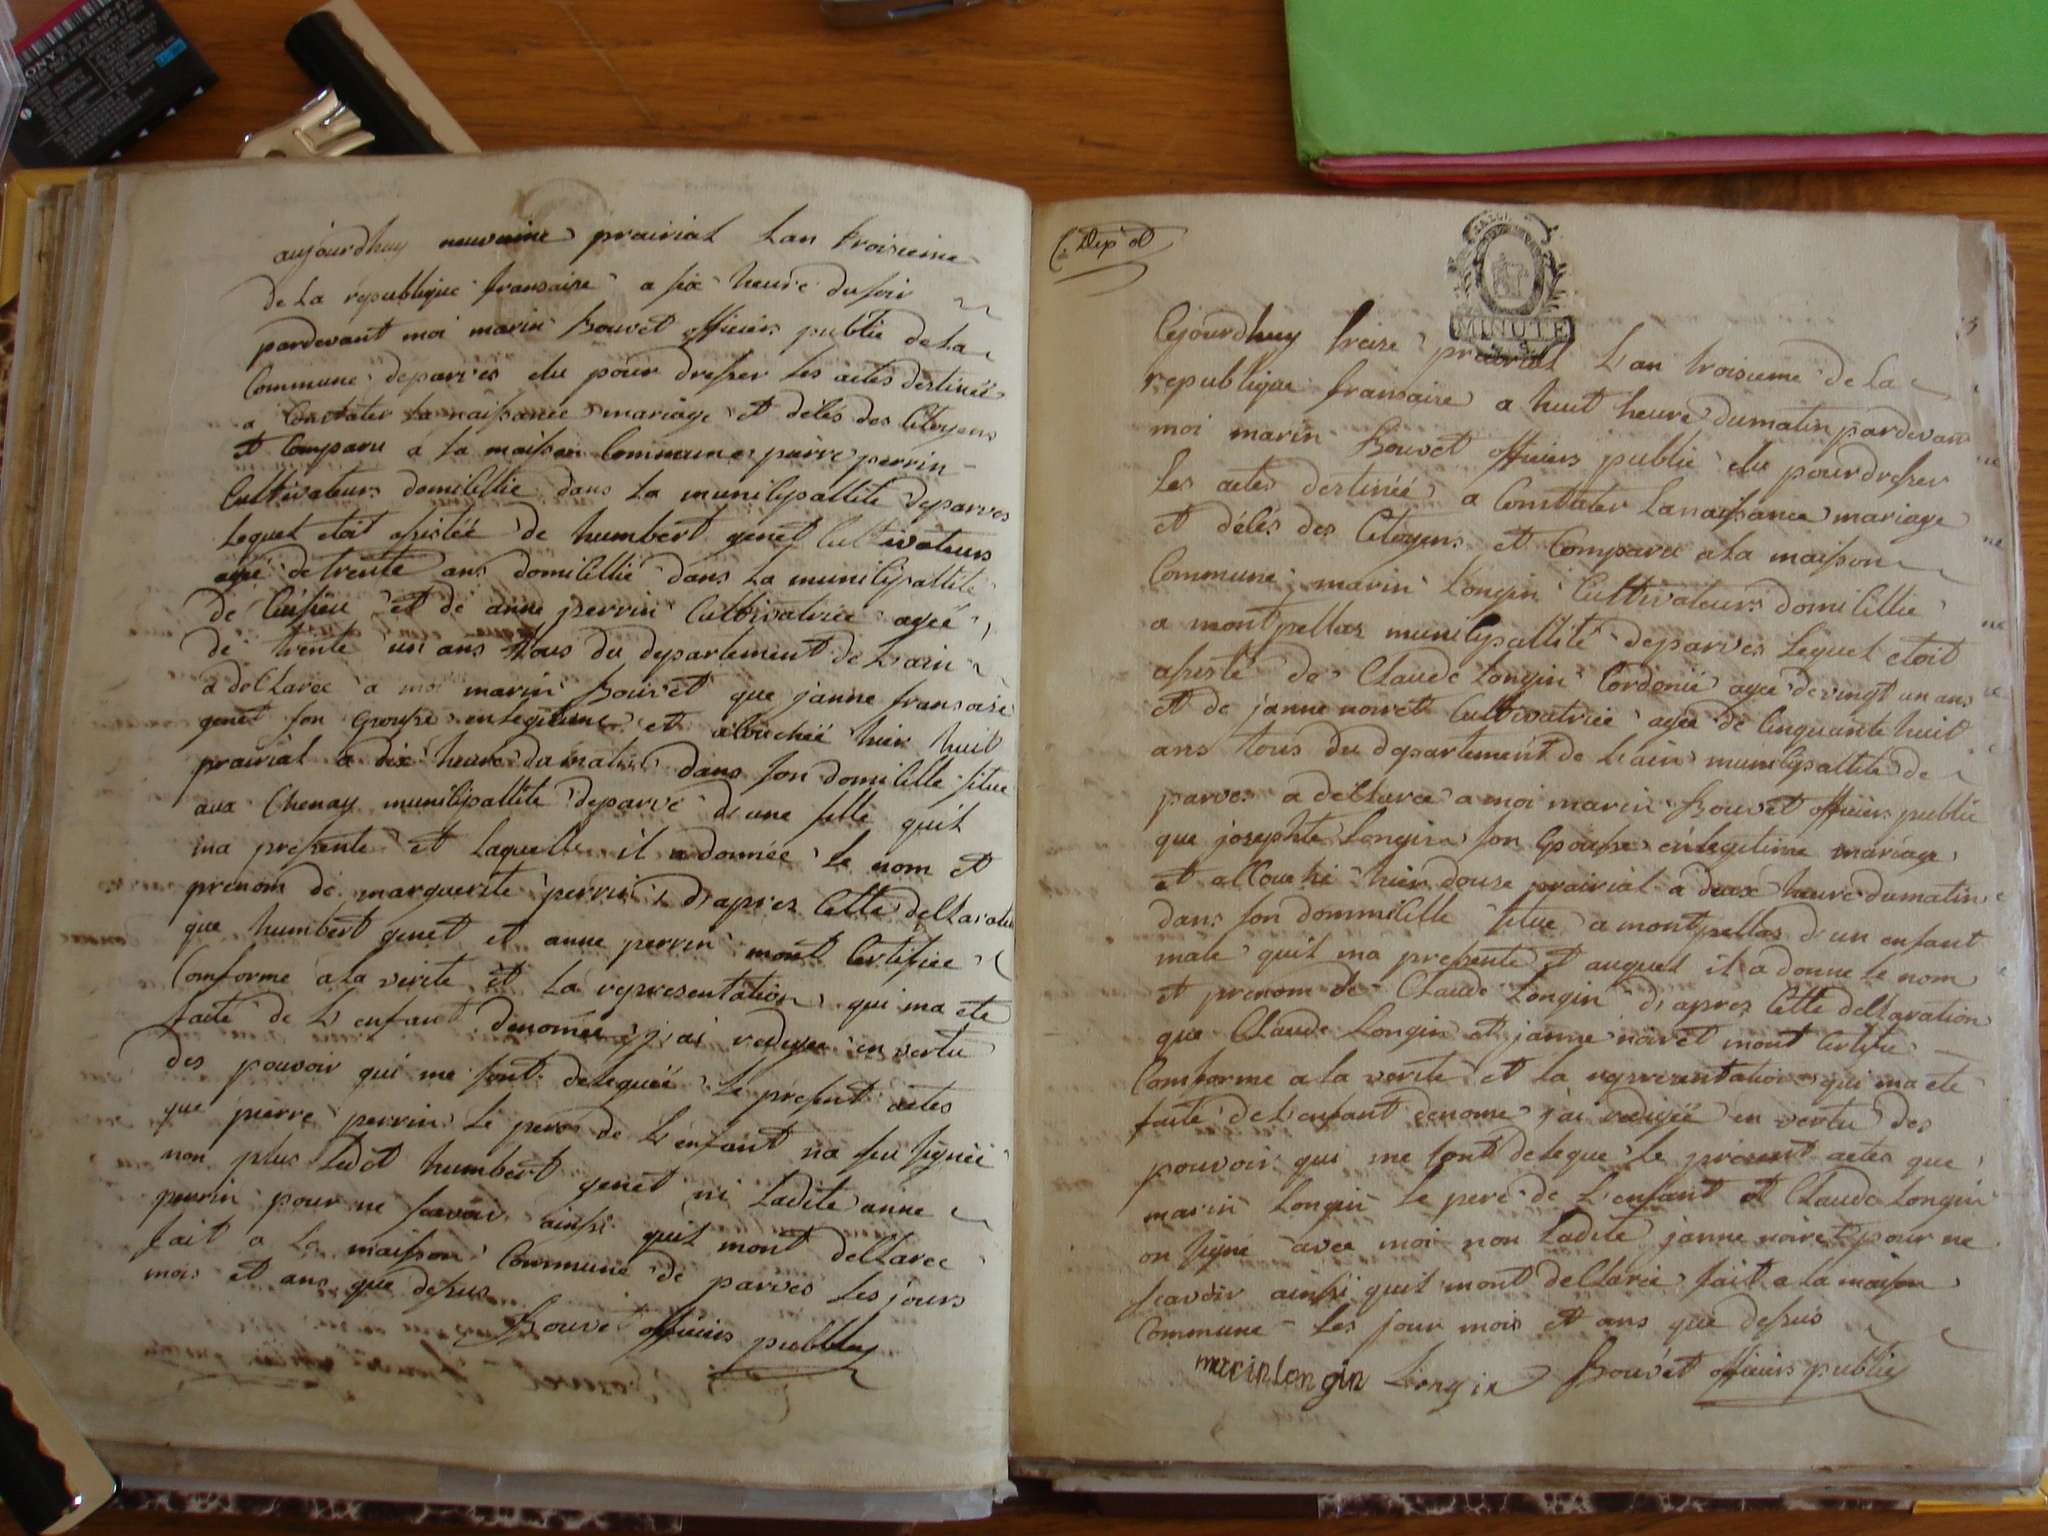 aujourdhuy neuvaine prairial Lan troisieme
de La republique fransaise a six heure du soir
pardevant moi marin Bouvet officiers public de La
Commune de parves elu pour dresser les actes destinée
a Constater La naissance mariage et délés des Citoyens
et Comparu a la maison Commune pierre perrin
Cultivateurs domicillie dans La municipallite de parves
Lequel etoit assistée de humbert genet Cultivateurs
age de trente ans domicillie dans La municipallite
de et de anne perrin Cultivatrice agée
de trente un ans tous du departement de L'ain
a decLaree a moi marin Bouvet que janne fransoise
genet son Epousse en Legitime et acouchée hier huit
prairial a dix heure du matin dans son domicille situe
aux Chenay municipallite de parve d'une fille quil
ma presente et Laquelle il a donnée le nom et
prenom de marguerite perrin d'apres Cette decLaration
que humbert genet et anne perrin mont Certifiee
Comforme a la verite et La representation qui ma ete
faite de L'enfant denomée j'ai rediger en vertu
des pouvoir qui me sont deleguée Le present actes
que pierre perrin Le pere de L'enfant na seu signée
non plus Ledet humbert genet ni Ladite anne
perrin pour ne savoir ainssi quil mont decLaree
fait a La maisson Commune de parves Les jours
mois et ans que dessus
Bouvet officiers public
MINUTE
Cejourdhuy treise prairial L'an troisieme de La
republique fransaise a huit heure du matin pardevan
moi marin Bouvet officiers public elu pour dresser
Les actes destinée a Constater La naissance mariage
et délés des Citoyens et Comparu a La maisson
Commune marin Longin Cultivateurs domicillie
a montpellas municipallite de parves Lequel etoit
assisté de Claude Longin Cordonié agee de vingt un ans
et de janne noiret Cultivatrice agée de Cinquante huit
ans tous du departement de L'ain municipallite de
parves a decLaree a moi marin Bouvet officiers public
que josephte Longin son Epousse en Legitime mariage
et allouche hier douse prairial a deux heure du matin
dans son dommicille situe a montpellas d'un enfant
male quil ma presente et auquel il a donne Le nom
et prenom de Claude Longin d'apres Cette decLaration
que Claude Longin et janne noiret mont Certifie
Comforme a la verite et La representation qui ma ete
faite de L'enfant denome j'ai redigée en vertu des
pouvoir qui me sont delegue Le present actes que
marin Longin Le pere de L'enfant et Claude Longin
on signe avec moi non Ladite janne noiret pour ne
scavoir ainssi quil mont decLaree fait a La maison
Commune Les jour mois et ans que dessus
marin longin Longin Bouvet officiers public